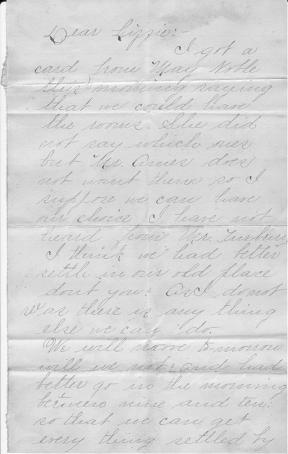 Dear Lizzie:-
I got a
card from May Noble
this morning saying
that we could have
the rooms. She did
not say which ones
but Mr. does
not want them so I
suppose we can have
our choice. I have not
heard from Mr.
I think we had better
settle in our old place
dont you? as I do not
as there is any thing
else we can do.
We will move to-morrow
will we not, and had
better go in the morning
between nine and ten
so that we can get
every thing settled by